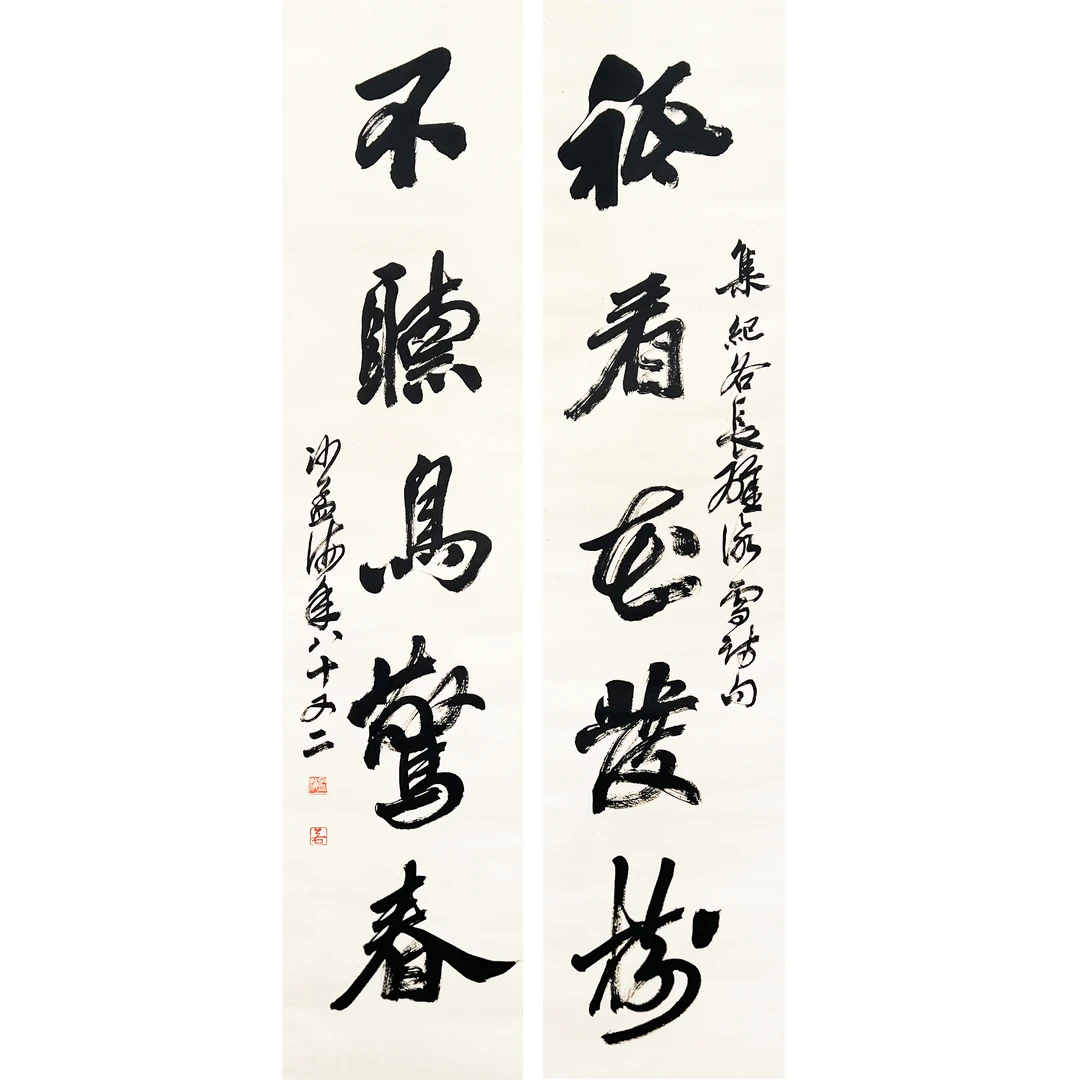 祇看花發樹
集紀各長權詠雪詩句
不聽鳥驚春
沙孟海年八十又二